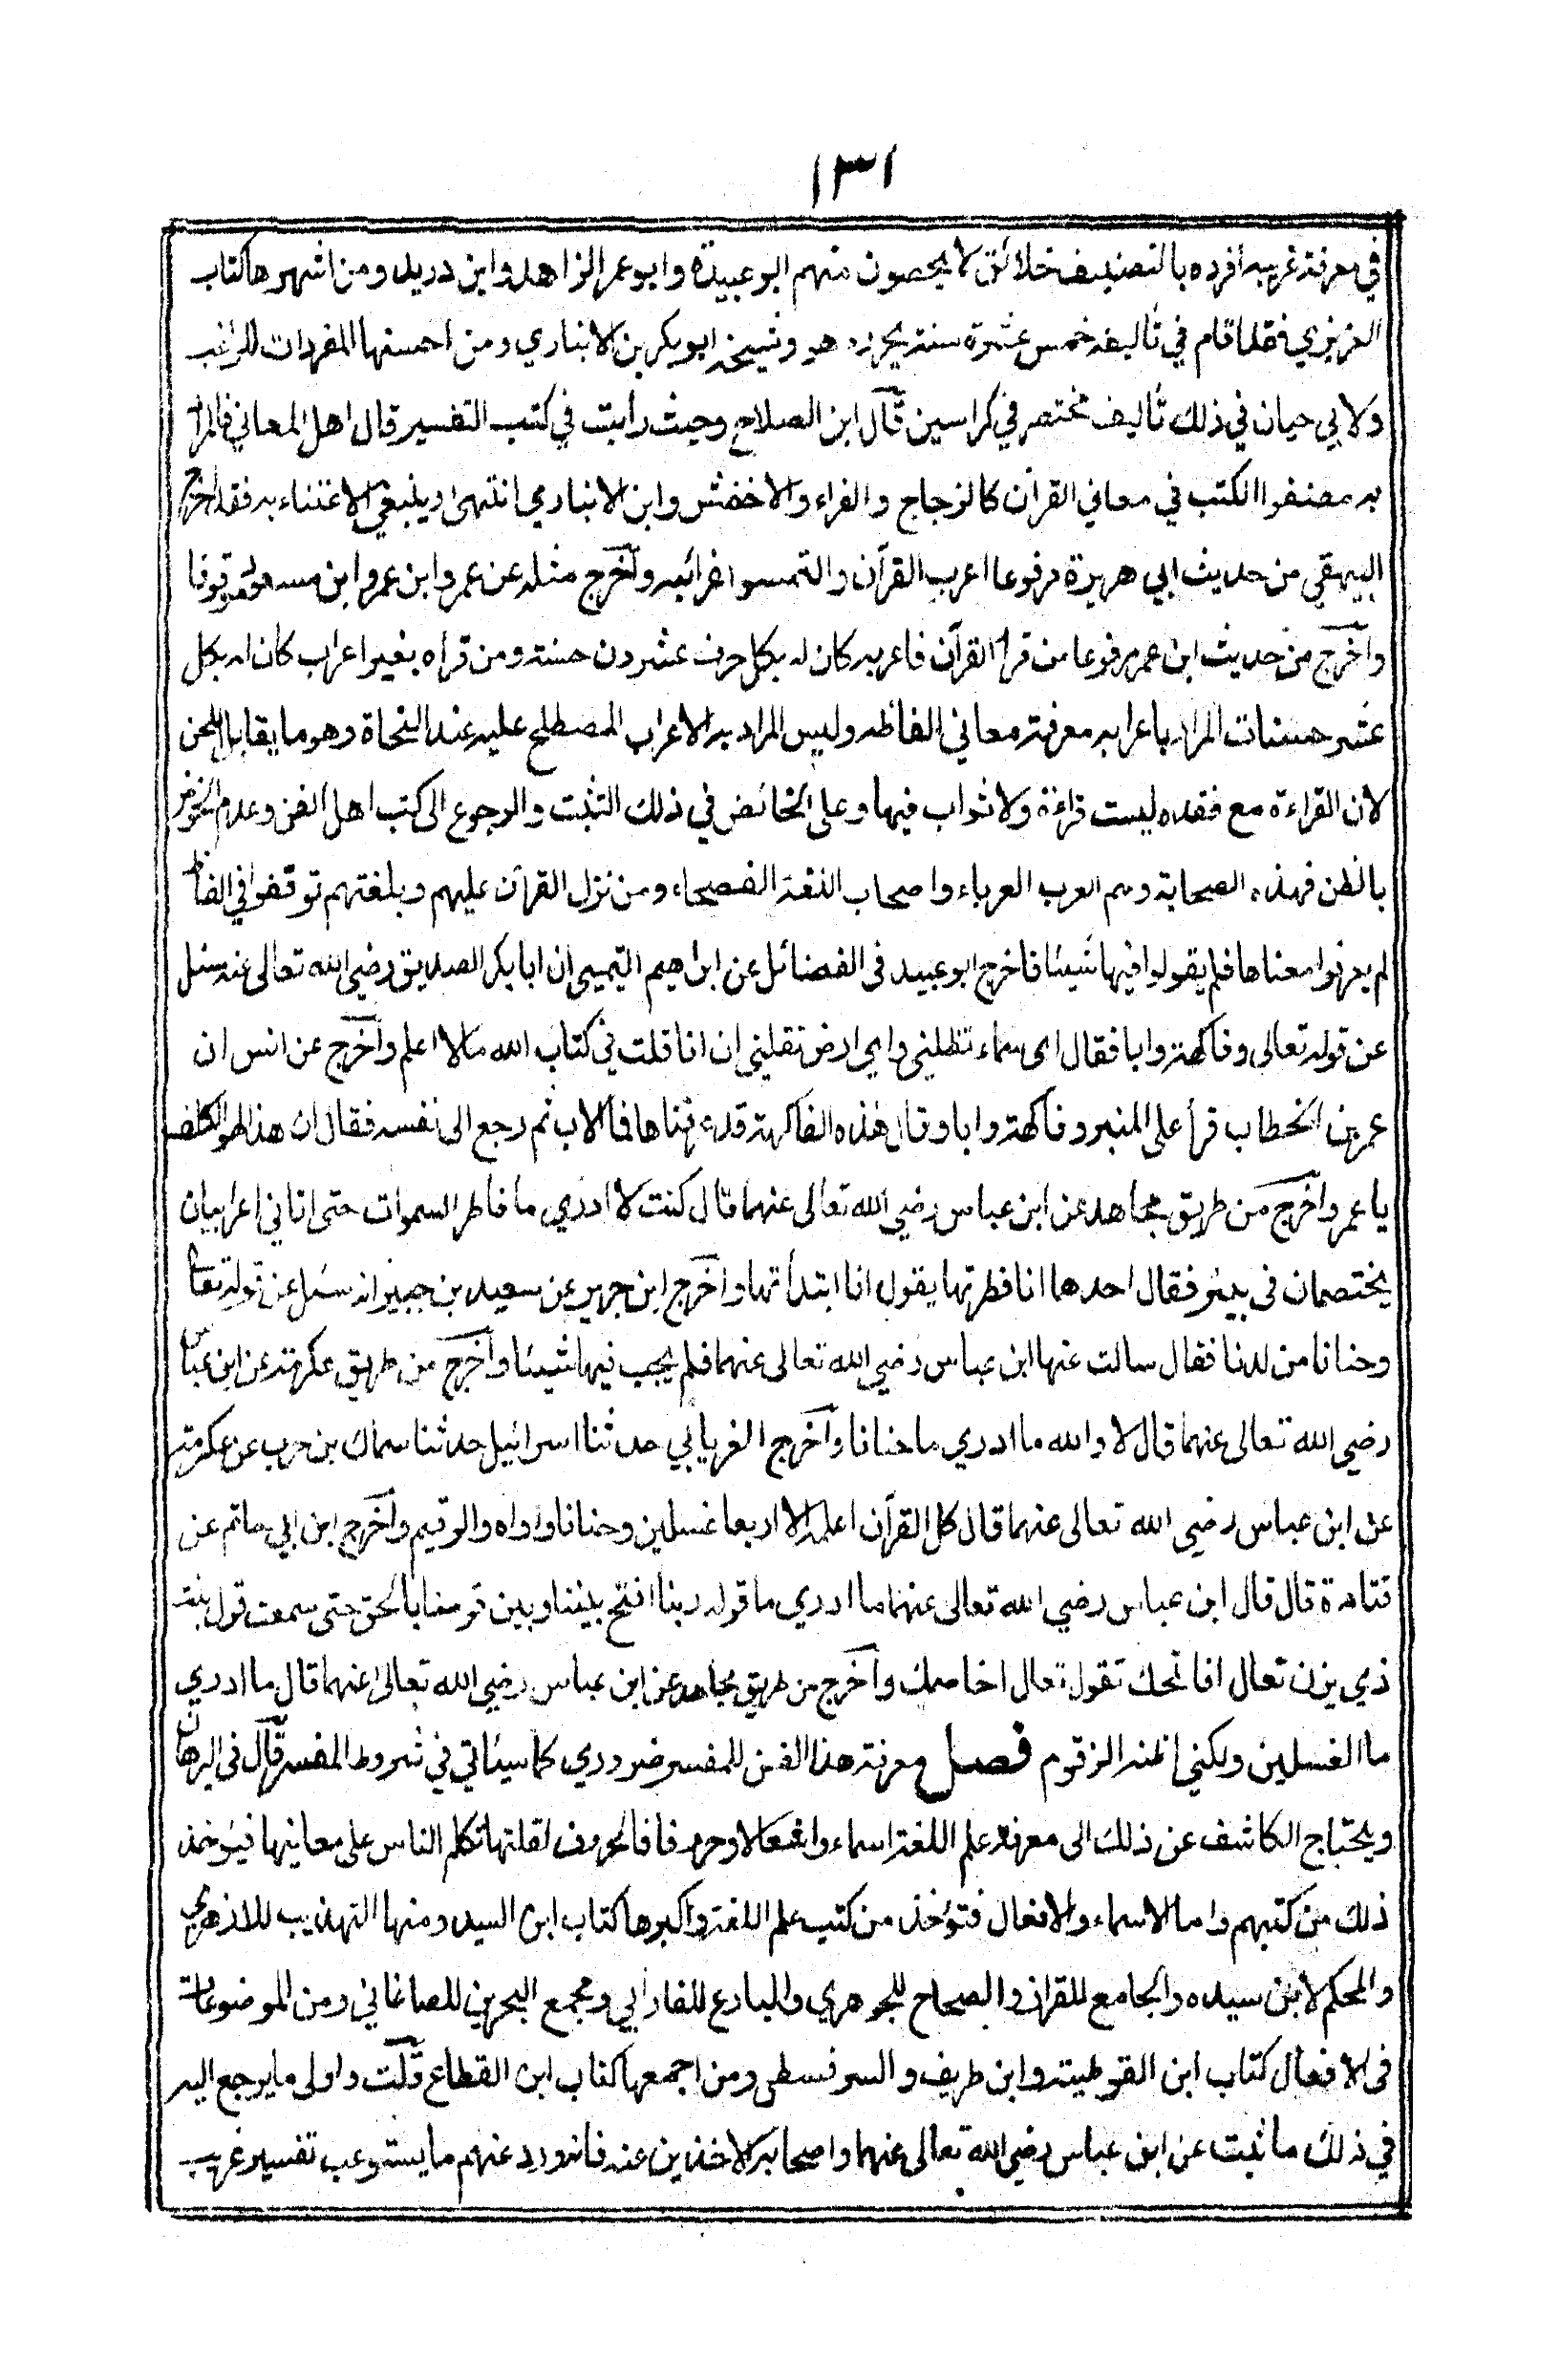 ١٣١
في معرفة غريبه افرده بالتصنيف خلائق لا يحصون منهم ابو عبيدة وابو عمر الزاهد وابن دريد ومن اشهرها كتاب
العزيزي فقد اقام في تأليفه خمس عشرة سنة يحرره هو وشيخه ابو بكر بن الانباري ومن احسنها المفردات للراغب
ولابي حيان في ذلك تأليف مختصر في كراسين قال ابن الصلاح وحيث رأيت في كتب التفسير قال اهل المعاني فالمراد
به مصنفوا الكتب في معاني القرآن كالزجاج والفراء والاخفش وابن الانباري انتهى وينبغي الاعتناء به فقد اخرج
البيهقي من حديث ابي هريرة مرفوعا اعربوا القرآن والتمسوا غرائبه وأخرج مثله عن عمر وابن عمر وابن مسعود موقوفا
وأخرج من حديث ابن عمر مرفوعا من قرأ القرآن فاعربه كان له بكل حرف عشرون حسنة ومن قرأه بغير اعراب كان له بكل
عشر حسنات المراد باعرابه معرفة معاني الفاظه وليس المراد به الاعراب المصطلح عليه عند النحاة وهو ما يقابل اللحن
لان القراءة مع فقده ليست قراءة ولا ثواب فيها وعلى الخائض في ذلك التثبت والرجوع الى كتب اهل الفن وعدم الخوض
بالظن فهذه الصحابة وهم العرب العرباء واصحاب اللغة الفصحاء ومن نزل القرآن عليهم وبلغتهم توقفوا في الفاظ
لم يعرفوا معناها فلم يقولوا فيها شيئا فاخرج ابو عبيد في الفضائل عن ابراهيم التيمي ان ابا بكر الصديق رضي الله تعالى عنه سئل
عن قوله تعالى وفاكهة وابا فقال اي سماء تظلني واي ارض تقلني ان انا قلت في كتاب الله ما لا اعلم وأخرج عن انس ان
عمر بن الخطاب قرأ على المنبر وفاكهة وابا وقال هذه الفاكهة قد عرفناها فما الاب ثم رجع الى نفسه فقال ان هذا لهو الكلف
يا عمر وأخرج من طريق مجاهد عن ابن عباس رضي الله تعالى عنهما قال كنت لا ادري ما فاطر السموات حتى اتاني اعرابيان
يختصمان في بئر فقال احدهما انا فطرتها يقول انا ابتدأتها وأخرج ابن جرير عن سعيد بن جبير انه سئل عن قوله تعالى
وحنانا من لدنا فقال سالت عنها ابن عباس رضي الله تعالى عنهما فلم يجب فيها شيئا وأخرج من طريق عكرمة عن ابن عباس
رضي الله تعالى عنهما قال لا والله ما ادري ما حنانا وأخرج الفريابي حدثنا اسرائيل حدثنا سماك بن حرب عن عكرمة
عن ابن عباس رضي الله تعالى عنهما قال كل القرآن اعلمه الا اربعا غسلين وحنانا واواه والرقيم وأخرج ابن ابي حاتم عن
قتادة قال قال ابن عباس رضي الله تعالى عنهما ما ادري ما قوله ربنا افتح بيننا وبين قومنا بالحق حتى سمعت قول بنت
ذي يزن تعال افاتحك تقول تعال اخاصمك وأخرج من طريق مجاهد عن ابن عباس رضي الله تعالى عنهما قال ما ادري
ما الغسلين ولكني اظنه الزقوم فصل معرفة هذا الفن للمفسر ضروري كما سيأتي في شروط المفسر قال في البرهان
ويحتاج الكاشف عن ذلك الى معرفة علم اللغة اسماء وافعالا وحروفا فالحروف لقلتها تكلم الناس على معانيها فيؤخذ
ذلك من كتبهم واما الاسماء والافعال فتؤخذ من كتب علم اللغة واكبرها كتاب ابن السيد ومنها التهذيب للازهري
والمحكم لابن سيده والجامع للقزاز والصحاح للجوهري والبارع للفارابي ومجمع البحرين للصاغاني ومن الموضوعات
في الافعال كتاب ابن القوطية وابن طريف والسرقسطي ومن اجمعها كتاب ابن القطاع قلت واولى ما يرجع اليه
في ذلك ما ثبت عن ابن عباس رضي الله تعالى عنهما واصحابه الاخذين عنه فانه ورد عنهم ما يستوعب تفسير غريب